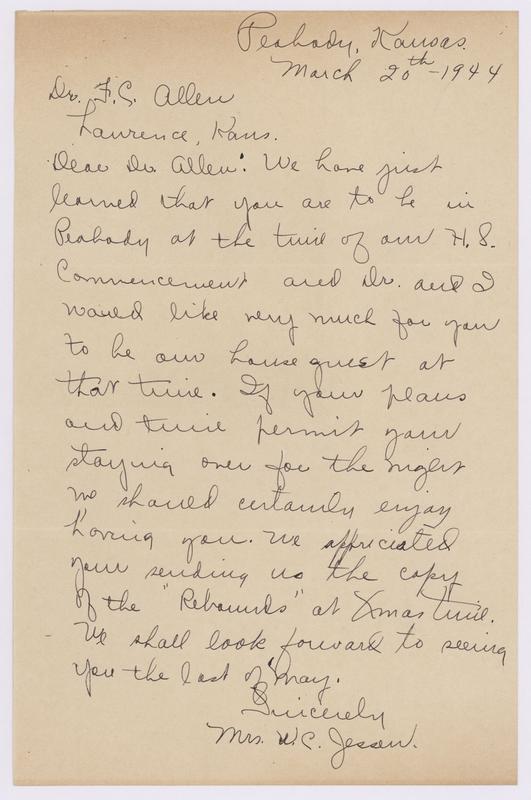 Peabody, Kansas.
March 20th-1944
Dr. F.C. Allen
Lawrence, Kans.
Dear Dr. Allen: We have just
learned that you are to be in
Peabody at the time of our H.S.
Commencement and Dr. and I
would like very much for you
to be our houseguest at
that time. If your plans
and time permit your
staying over for the night
we should certainly enjoy
having you. We appreciated
your sending us the copy
of the "Rebounds" at Xmas time.
We shall look forward to seeing
you the last of May.
Sincerely
Mrs. W.C. Jessen.